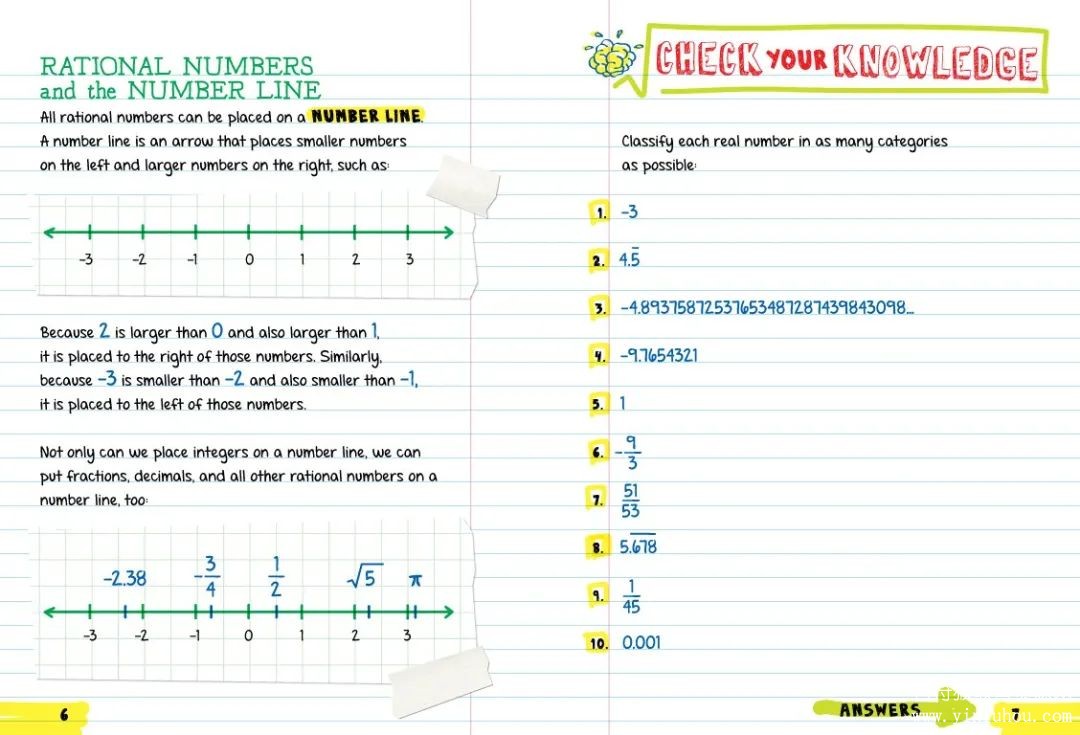 RATIONAL NUMBERS
and the NUMBER LINE
All rational numbers can be placed on a NUMBER LINE.
A number line is an arrow that places smaller numbers
on the left and larger numbers on the right, such as:
-3 -2 -1 0 1 2 3
Because 2 is larger than 0 and also larger than 1,
it is placed to the right of those numbers. Similarly,
because -3 is smaller than -2 and also smaller than -1,
it is placed to the left of those numbers.
Not only can we place integers on a number line, we can
put fractions, decimals, and all other rational numbers on a
number line, too:
-2.38 -3/4 1/2 √5 π
-3 -2 -1 0 1 2 3
6
CHECK YOUR KNOWLEDGE
Classify each real number in as many categories
as possible:
1. -3
2. 4.5̅
3. -4.89375872537653487287439843098...
4. -9.7654321
5. 1
6. -9/3
7. 51/53
8. 5.6̅7̅8̅
9. 1/45
10. 0.001
ANSWERS 7